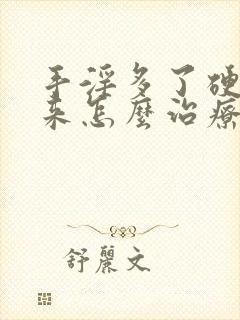 手淫多了硬
来怎麼治療
舒麗文